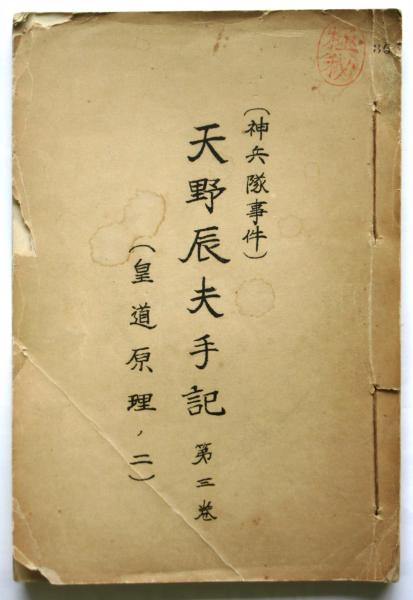 極秘
36
（神兵隊事件）
天野辰夫手記 第三巻
（皇道原理ノ二）